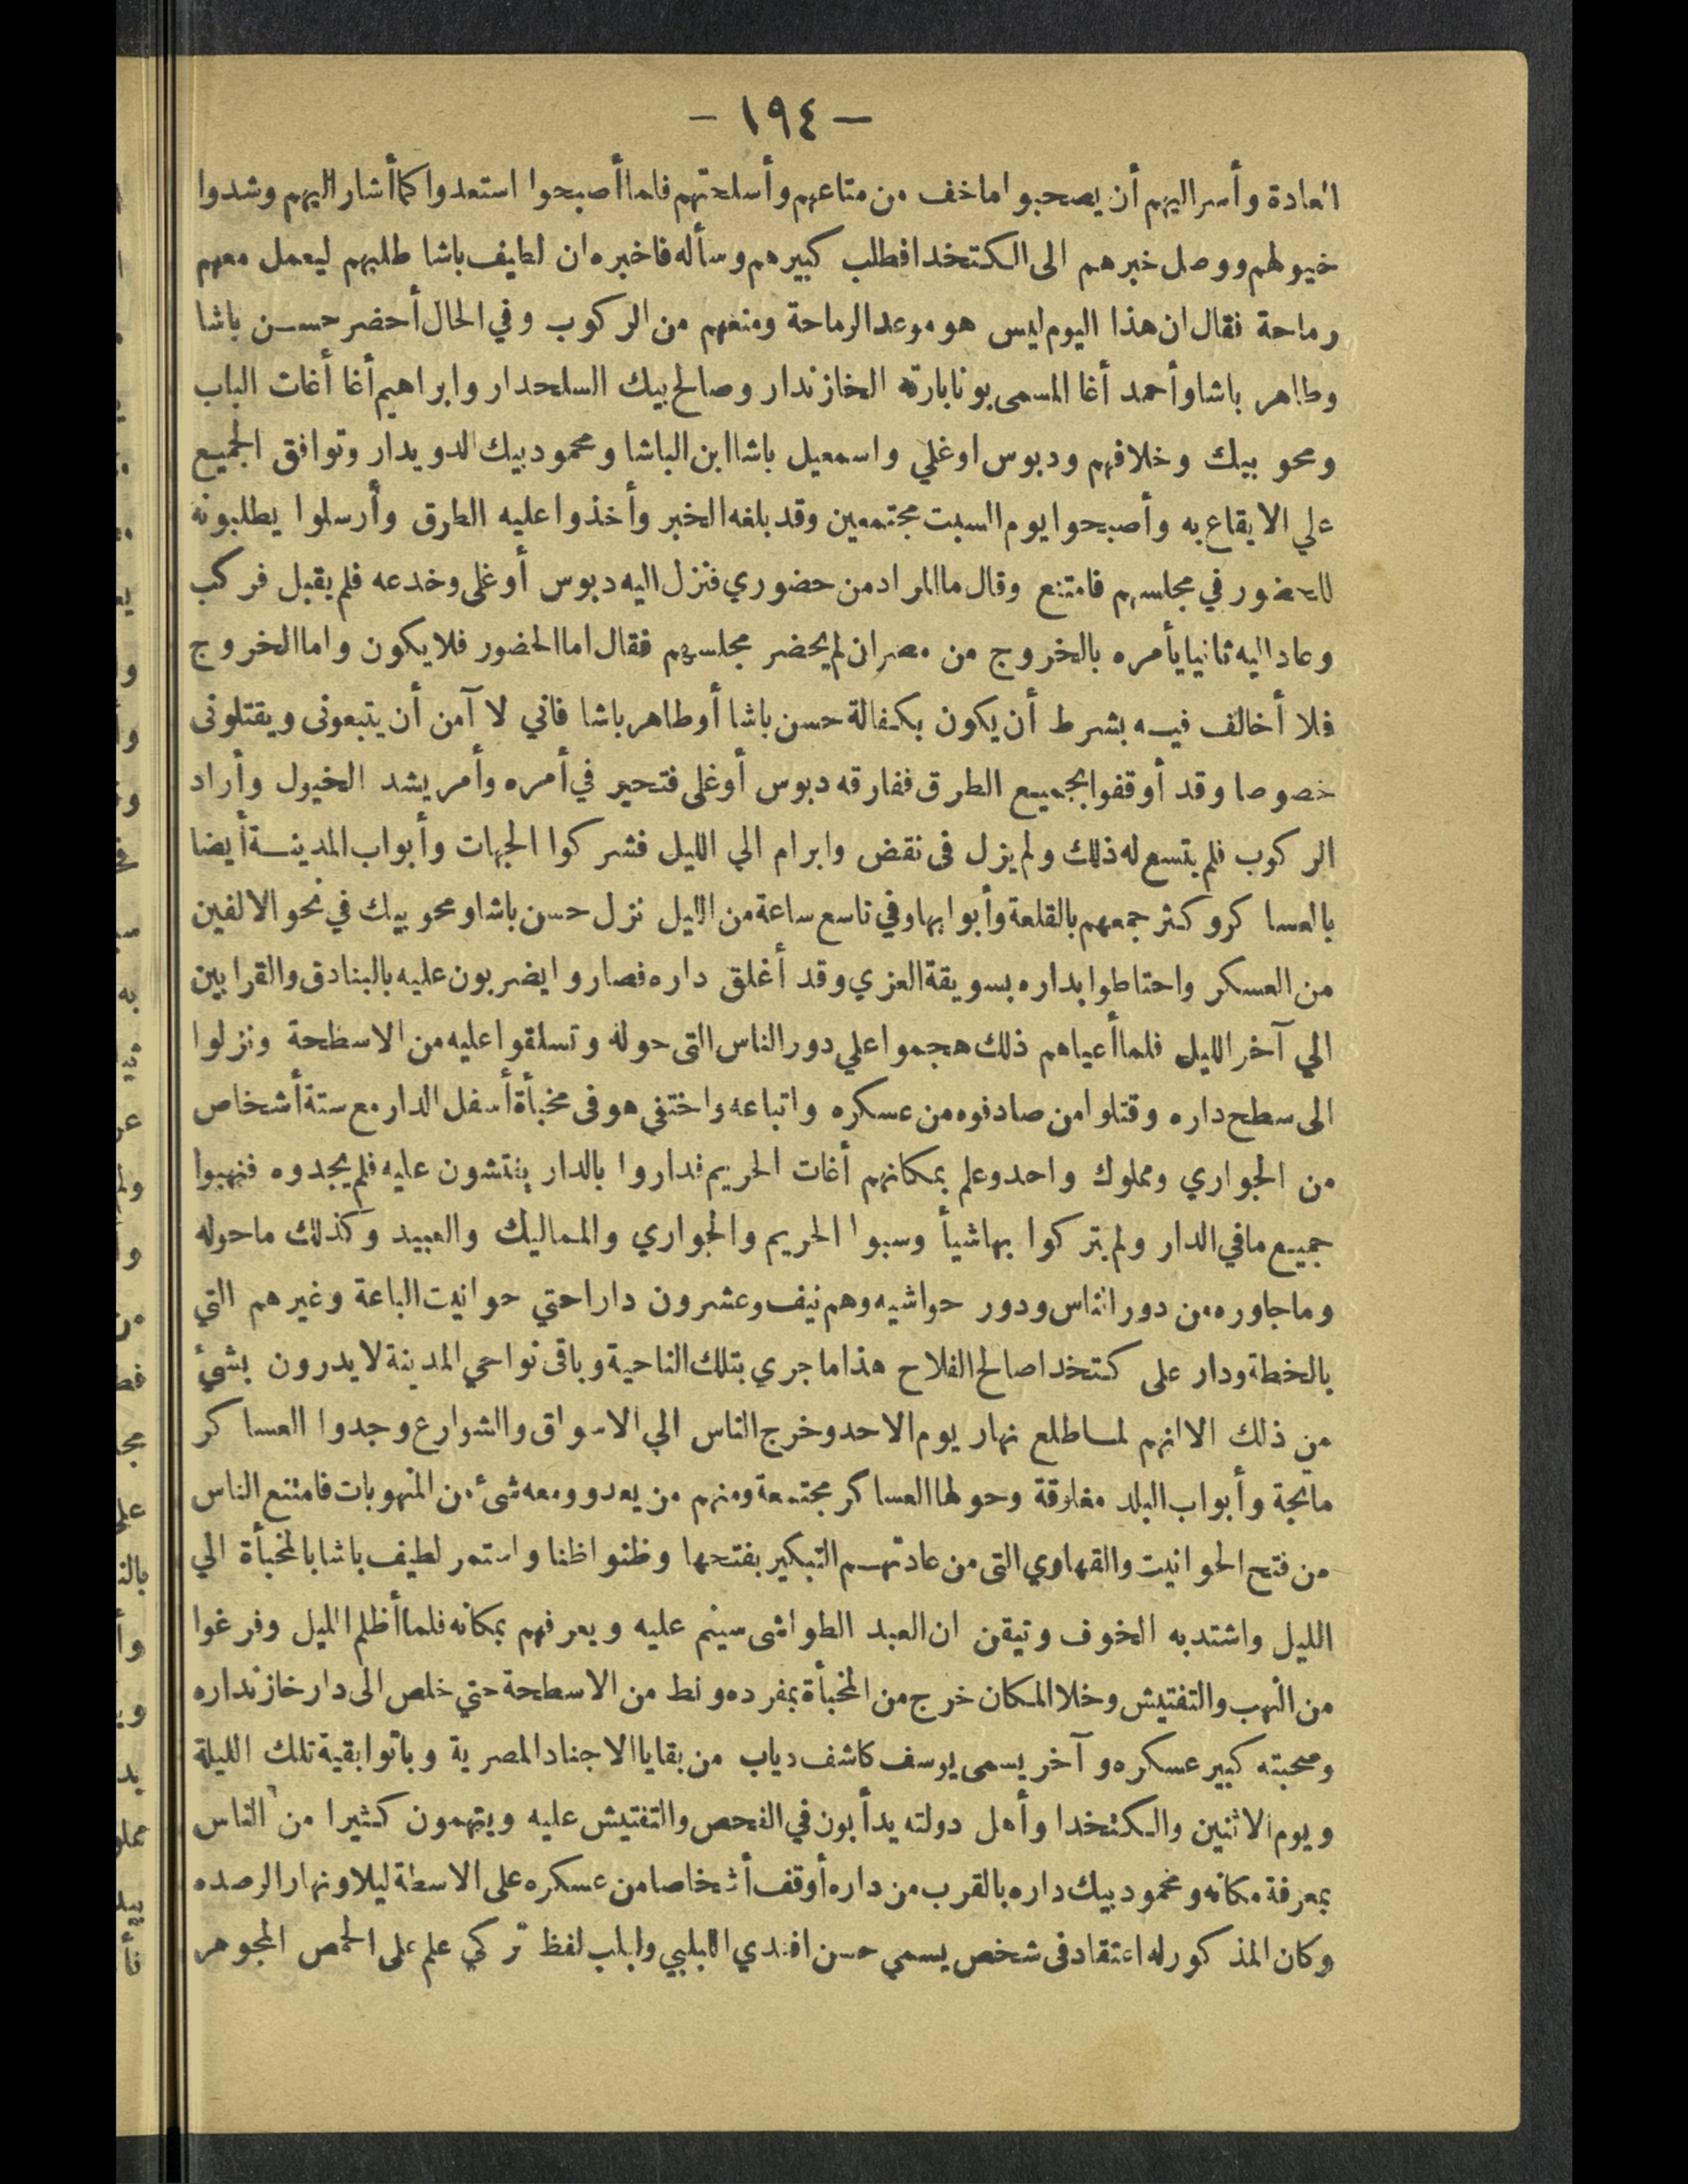 — ١٩٤ —
العادة وأسر اليهم أن يصحبوا ما خف من متاعهم وأسلحتهم فلما أصبحوا استعدوا كما أشار اليهم وشدوا
خيولهم ووصل خبرهم الى الكتخدا فطلب كبيرهم وسأله فاخبره ان لطيف باشا طلبهم ليعمل معهم
رماحة فقال ان هذا اليوم ليس هو موعد الرماحة ومنعهم من الركوب وفي الحال أحضر حسن باشا
وطاهر باشا وأحمد أغا المسمى بونابارته الخازندار وصالح بيك السلحدار وابراهيم أغا أغات الباب
ومحو بيك وخلافهم ودبوس اوغلي واسمعيل باشا ابن الباشا ومحمود بيك الدويدار وتوافق الجميع
علي الايقاع به وأصبحوا يوم السبت مجتمعين وقد بلغه الخبر وأخذوا عليه الطرق وأرسلوا يطلبونه
للحضور في مجلسهم فامتنع وقال ما المراد من حضوري فنزل اليه دبوس أوغلى وخدعه فلم يقبل فركب
وعاد اليه ثانيا يأمره بالخروج من مصر ان لم يحضر مجلسهم فقال اما الحضور فلا يكون واما الخروج
فلا أخالف فيه بشرط أن يكون بكفالة حسن باشا أو طاهر باشا فاني لا آمن أن يتبعونى ويقتلونى
خصوصا وقد أوقفوا بجميع الطرق ففارقه دبوس أوغلى فتحير في أمره وأمر بشد الخيول وأراد
الركوب فلم يتسع له ذلك ولم يزل فى نقض وابرام الي الليل فشركوا الجهات وأبواب المدينة أيضا
بالعساكر وكثر جمعهم بالقلعة وأبوابها وفي تاسع ساعة من الليل نزل حسن باشا ومحو بيك في نحو الالفين
من العسكر واحتاطوا بداره بسويقة العزي وقد أغلق داره فصاروا يضربون عليه بالبنادق والقرابين
الي آخر الليل فلما أعياهم ذلك هجموا علي دور الناس التى حوله وتسلقوا عليه من الاسطحة ونزلوا
الى سطح داره وقتلوا من صادفوه من عسكره واتباعه واختفي هو فى مخبأة أسفل الدار مع ستة أشخاص
من الجواري ومملوك واحد وعلم بمكانهم أغات الحريم فداروا بالدار يفتشون عليه فلم يجدوه فنهبوا
جميع ما في الدار ولم يتركوا بها شيأ وسبوا الحريم والجواري والمماليك والعبيد وكذلك ما حوله
وما جاوره من دور الناس ودور حواشيه وهم نيف وعشرون دارا حتي حوانيت الباعة وغيرهم التي
بالخطة ودار على كتخدا صالح الفلاح هذا ما جري بتلك الناحية وباقى نواحي المدينة لا يدرون بشئ
من ذلك الا انهم لما طلع نهار يوم الاحد وخرج الناس الي الاسواق والشوارع وجدوا العساكر
مائجة وأبواب البلد مغلوقة وحولها العساكر مجتمعة ومنهم من يعدو ومعه شئ من المنهوبات فامتنع الناس
من فتح الحوانيت والقهاوي التى من عادتهم التبكير بفتحها وظنوا ظنا واستمر لطيف باشا بالمخبأة الي
الليل واشتد به الخوف وتيقن ان العبد الطواشى سينم عليه ويعرفهم بمكانه فلما أظلم الليل وفرغوا
من النهب والتفتيش وخلا المكان خرج من المخبأة بمفرده ونط من الاسطحة حتي خلص الى دار خازنداره
وصحبته كبير عسكره وآخر يسمى يوسف كاشف دياب من بقايا الاجناد المصرية وباتوا بقية تلك الليلة
ويوم الاثنين والكتخدا وأهل دولته يدأبون في الفحص والتفتيش عليه ويتهمون كثيرا من الناس
بمعرفة مكانه ومحمود بيك داره بالقرب من داره أوقف أشخاصا من عسكره على الاسطة ليلا ونهارا لرصده
وكان المذكور له اعتقاد فى شخص يسمي حسن افندي اللبلبي ولبلب لفظ تركي علم على الحمص المجوهر